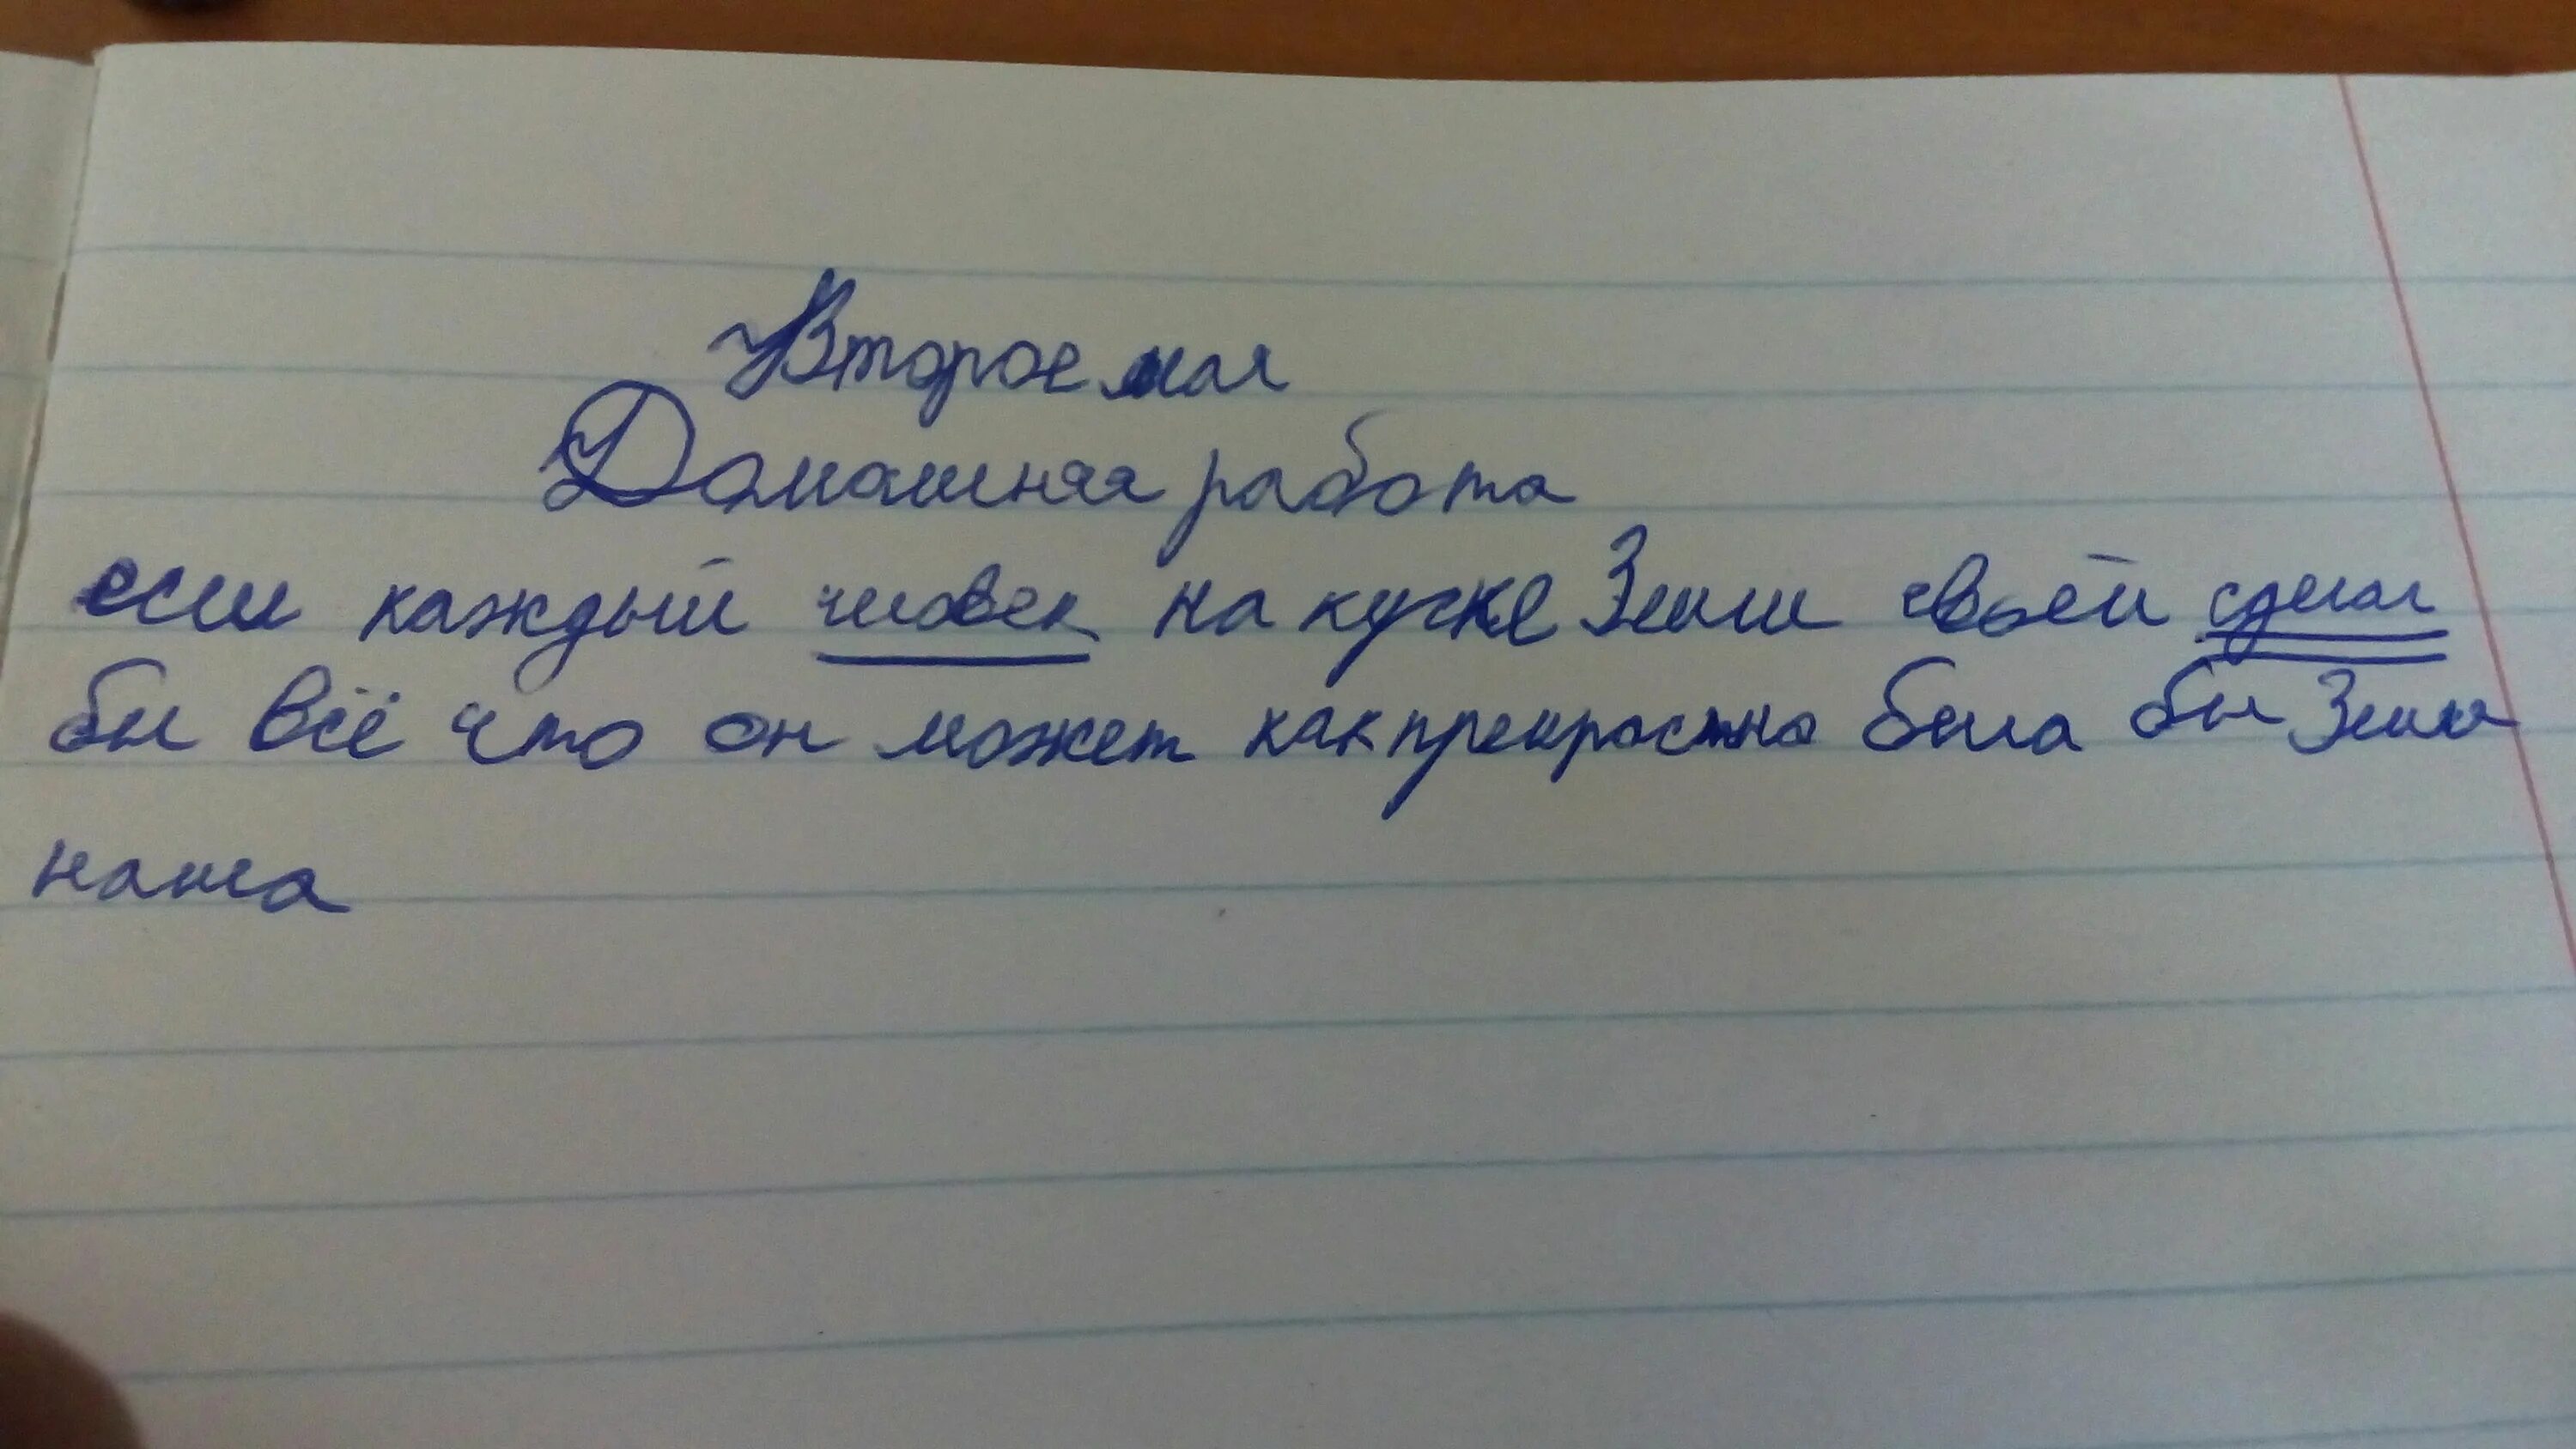 Второе мая
Домашняя работа
если каждый человек на кучке Земли своей сделал
бы всё что он может как прекрастна была бы Земля
наша